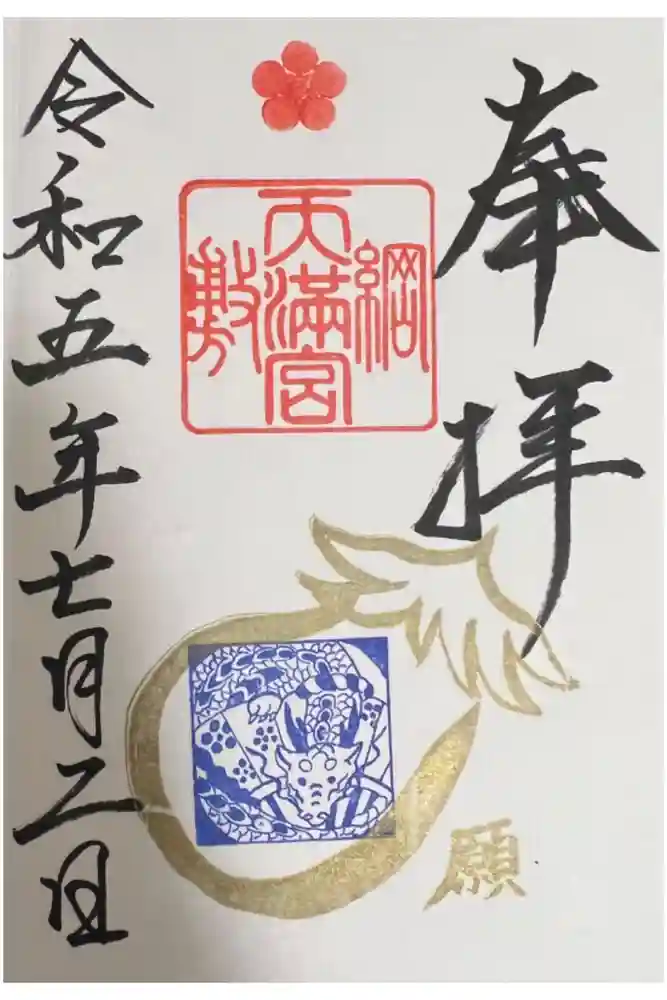 奉拝
綱敷天満宮
願
令和五年七月二日